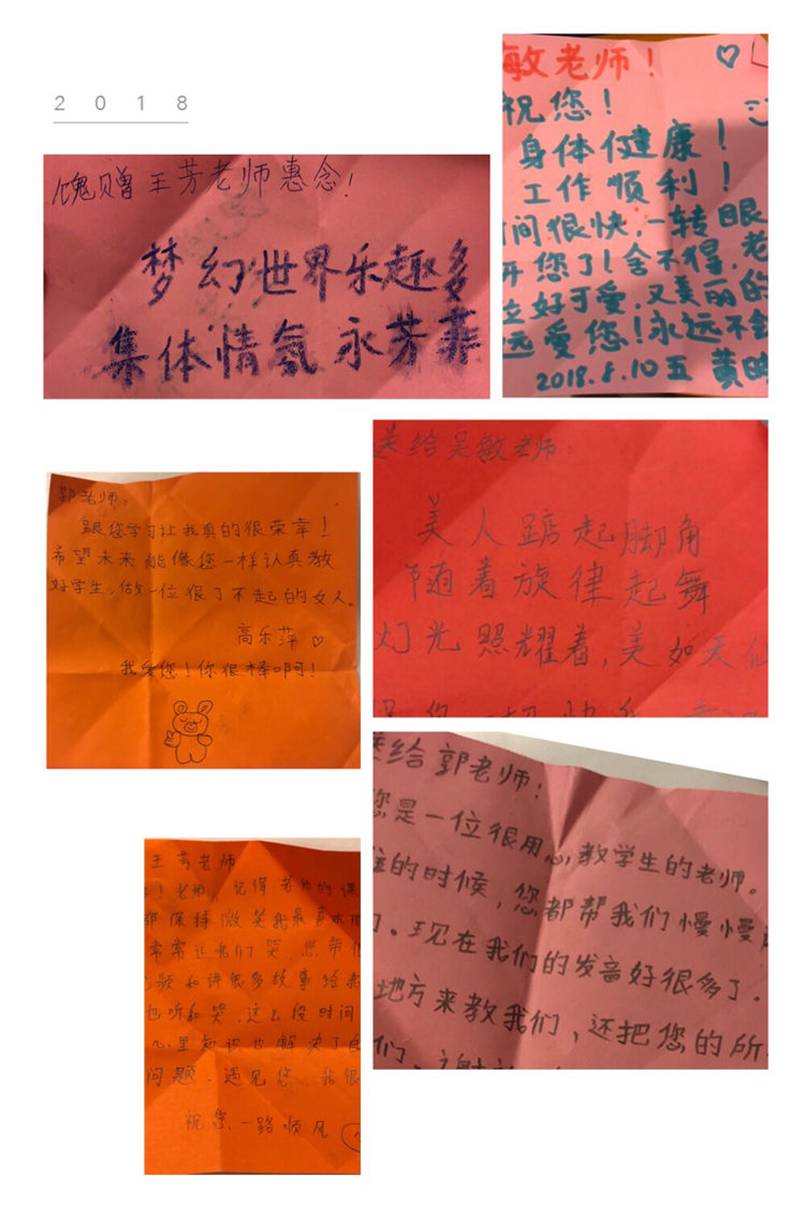 2018
馈赠王芳老师惠念！
梦幻世界乐趣多
集体情氛永芳菲
敏老师！
祝您！
身体健康！
工作顺利！
间很快，一转眼
您了！舍不得，老
位好可爱，又美丽的
远爱您！永远不会
2018.8.10五 黄
郭老师：
跟您学习让我真的很荣幸！
希望未来能像您一样认真教
好学生，做一位很了不起的女人。
高乐萍
我爱您！你很棒啊！
送给吴敏老师：
美人踮起脚角
随着旋律起舞
灯光照耀着，美如天仙
送给郭老师：
您是一位很用心教学生的老师。
的时候，您都帮我们慢慢
们。现在我们的发音好很多了。
地方来教我们，还把您的所
们，谢谢
王芳老师
！老师，记得老师的课
都保持微笑我最喜欢
常常让我们哭，您带
视频和讲很多故事给我
也听和哭，这么段时间
心里知识也解决了
问题，遇见您，我很
祝您一路顺风